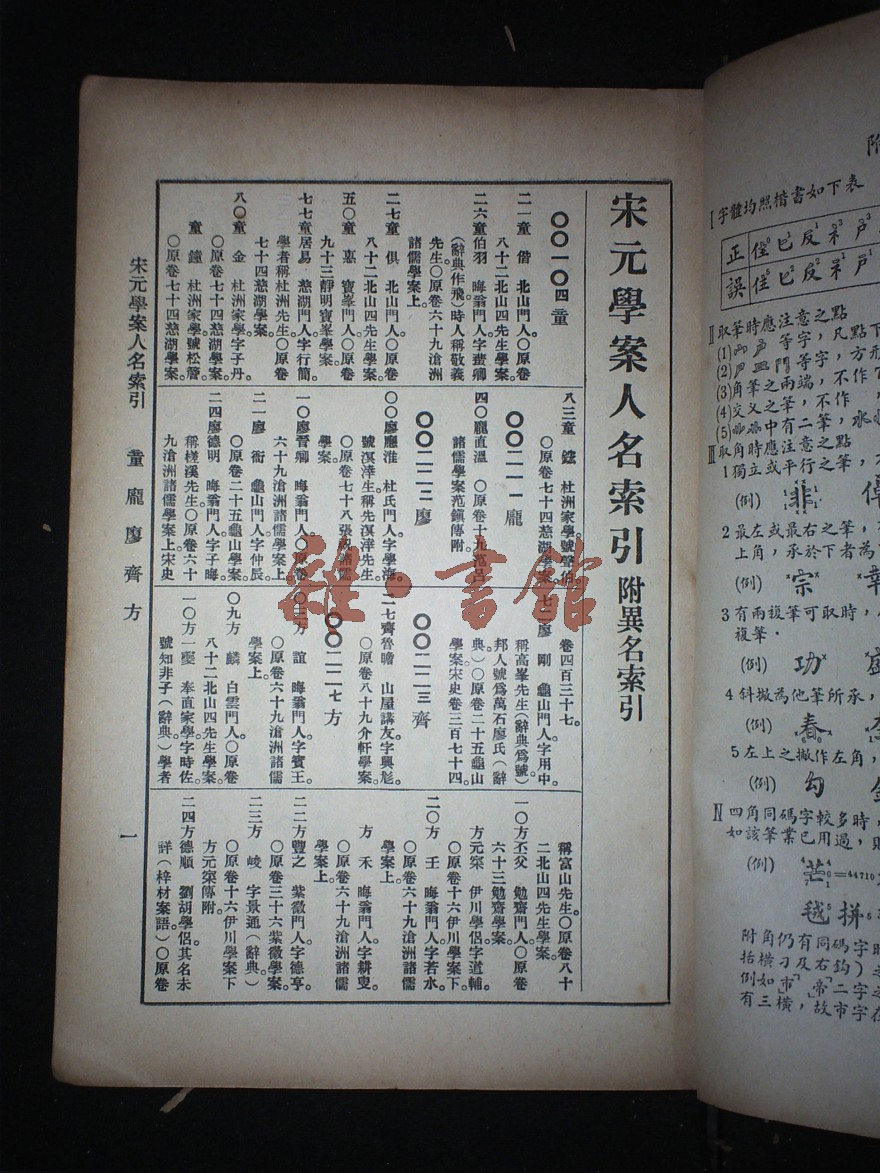 宋元學案人名索引附異名索引
〇〇一〇四童
二一童偕　北山門人。〇原卷
八十二北山四先生學案。
二六童伯羽　晦翁門人字蜚卿
（辭典作飛）時人稱敬義
先生〇原卷六十九滄洲
諸儒學案上。
二七童俱　北山門人。〇原卷
八十二北山四先生學案。
五〇童惠　寶峯門人〇原卷
九十三靜明寶峯學案。
七七童居易　慈湖門人字行簡。
學者稱杜洲先生〇原卷
七十四慈湖學案。
八〇童金　杜洲家學字子丹。
〇原卷七十四慈湖學案。
童鐘　杜洲家學號松簷。
〇原卷七十四慈湖學案。
八三童鋐　杜洲家學。號
〇原卷七十四慈湖學案。
〇〇二一一龐
四〇龐直溫　〇原卷十九范呂
諸儒學案范鎮傳附。
〇〇二二二廖
〇〇廖應淮　杜氏門人字學海
號溟涬生稱先溟涬先生。
〇原卷七十八張祝諸儒
學案。
一〇廖晉卿　晦翁門人〇原卷
六十九滄洲諸儒學案上
二一廖衙　龜山門人字仲辰
〇原卷二十五龜山學案。
二四廖德明　晦翁門人字子晦
稱槎溪先生〇原卷六十
九滄洲諸儒學案上宋史
卷四百三十七。
七二廖剛　龜山門人字用中。
稱高峯先生（辭典爲號）
邦人號爲萬石廖氏（辭
典）〇原卷二十五龜山
學案宋史卷三百七十四。
〇〇二二三齊
二七齊魯瞻　山屋講友字興龍
〇原卷八十九介軒學案。
〇〇二二七方
〇三方誼　晦翁門人字賓王。
〇原卷六十九滄洲諸儒
學案上。
〇九方麟　白雲門人〇原卷
八十二北山四先生學案。
一〇方一夔　奉直家學字時佐。
號知非子（辭典）學者
稱富山先生〇原卷八十
二北山四先生學案。
一〇方丕父　勉齋門人〇原卷
六十三勉齋學案
方元寀　伊川學侶字道輔
〇原卷十六伊川學案下。
二〇方壬　晦翁門人字若水。
〇原卷六十九滄洲諸儒
學案上。
方禾　晦翁門人字耕叟。
〇原卷六十九滄洲諸儒
學案上。
二二方豐之　紫微門人字德亨。
〇原卷三十六紫微學案。
二三方峻　字景通（辭典）
〇原卷十六伊川學案下
方元寀傳附。
二四方德順　劉胡學侶其名未
詳（梓材案語）〇原卷
宋元學案人名索引　童龐廖齊方　一
雜·書館
附
Ⅰ字體均照楷書如下表
正
誤
Ⅱ取筆時應注意之點
(1)
(2)
(3)角筆之兩端，不作
(4)交叉之筆，不作
(5)
Ⅲ取角時應注意之點
1獨立或平行之筆，
(例)非
2最左或最右之筆，
上角，承於下者為
(例)宗
3有兩複筆可取時，
複筆．
(例)功
4斜撇為他筆所承，
(例)春
5左上之撇作左角，
(例)勾
Ⅳ四角同碼字較多時，
如該筆業已用過，則
(例)芒=44710